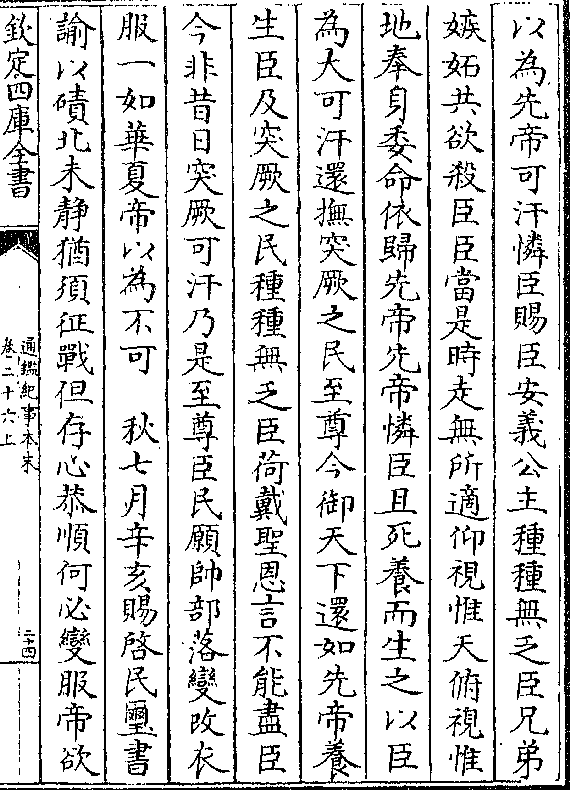 以為先帝可汗憐臣賜臣安義公主種種無乏臣兄弟
嫉妬共欲殺臣臣當是時走無所適仰視惟天俯視惟
地奉身委命依歸先帝先帝憐臣且死養而生之以臣
為大可汗還撫突厥之民至尊今御天下還如先帝養
生臣及突厥之民種種無乏臣荷戴聖恩言不能盡臣
今非昔日突厥可汗乃是至尊臣民願帥部落變改衣
服一如華夏帝以為不可　秋七月辛亥賜啓民璽書
諭以磧北未静猶須征戰但存心恭順何必變服帝欲
欽定四庫全書
通鑑紀事本末
卷二十六上
二十四